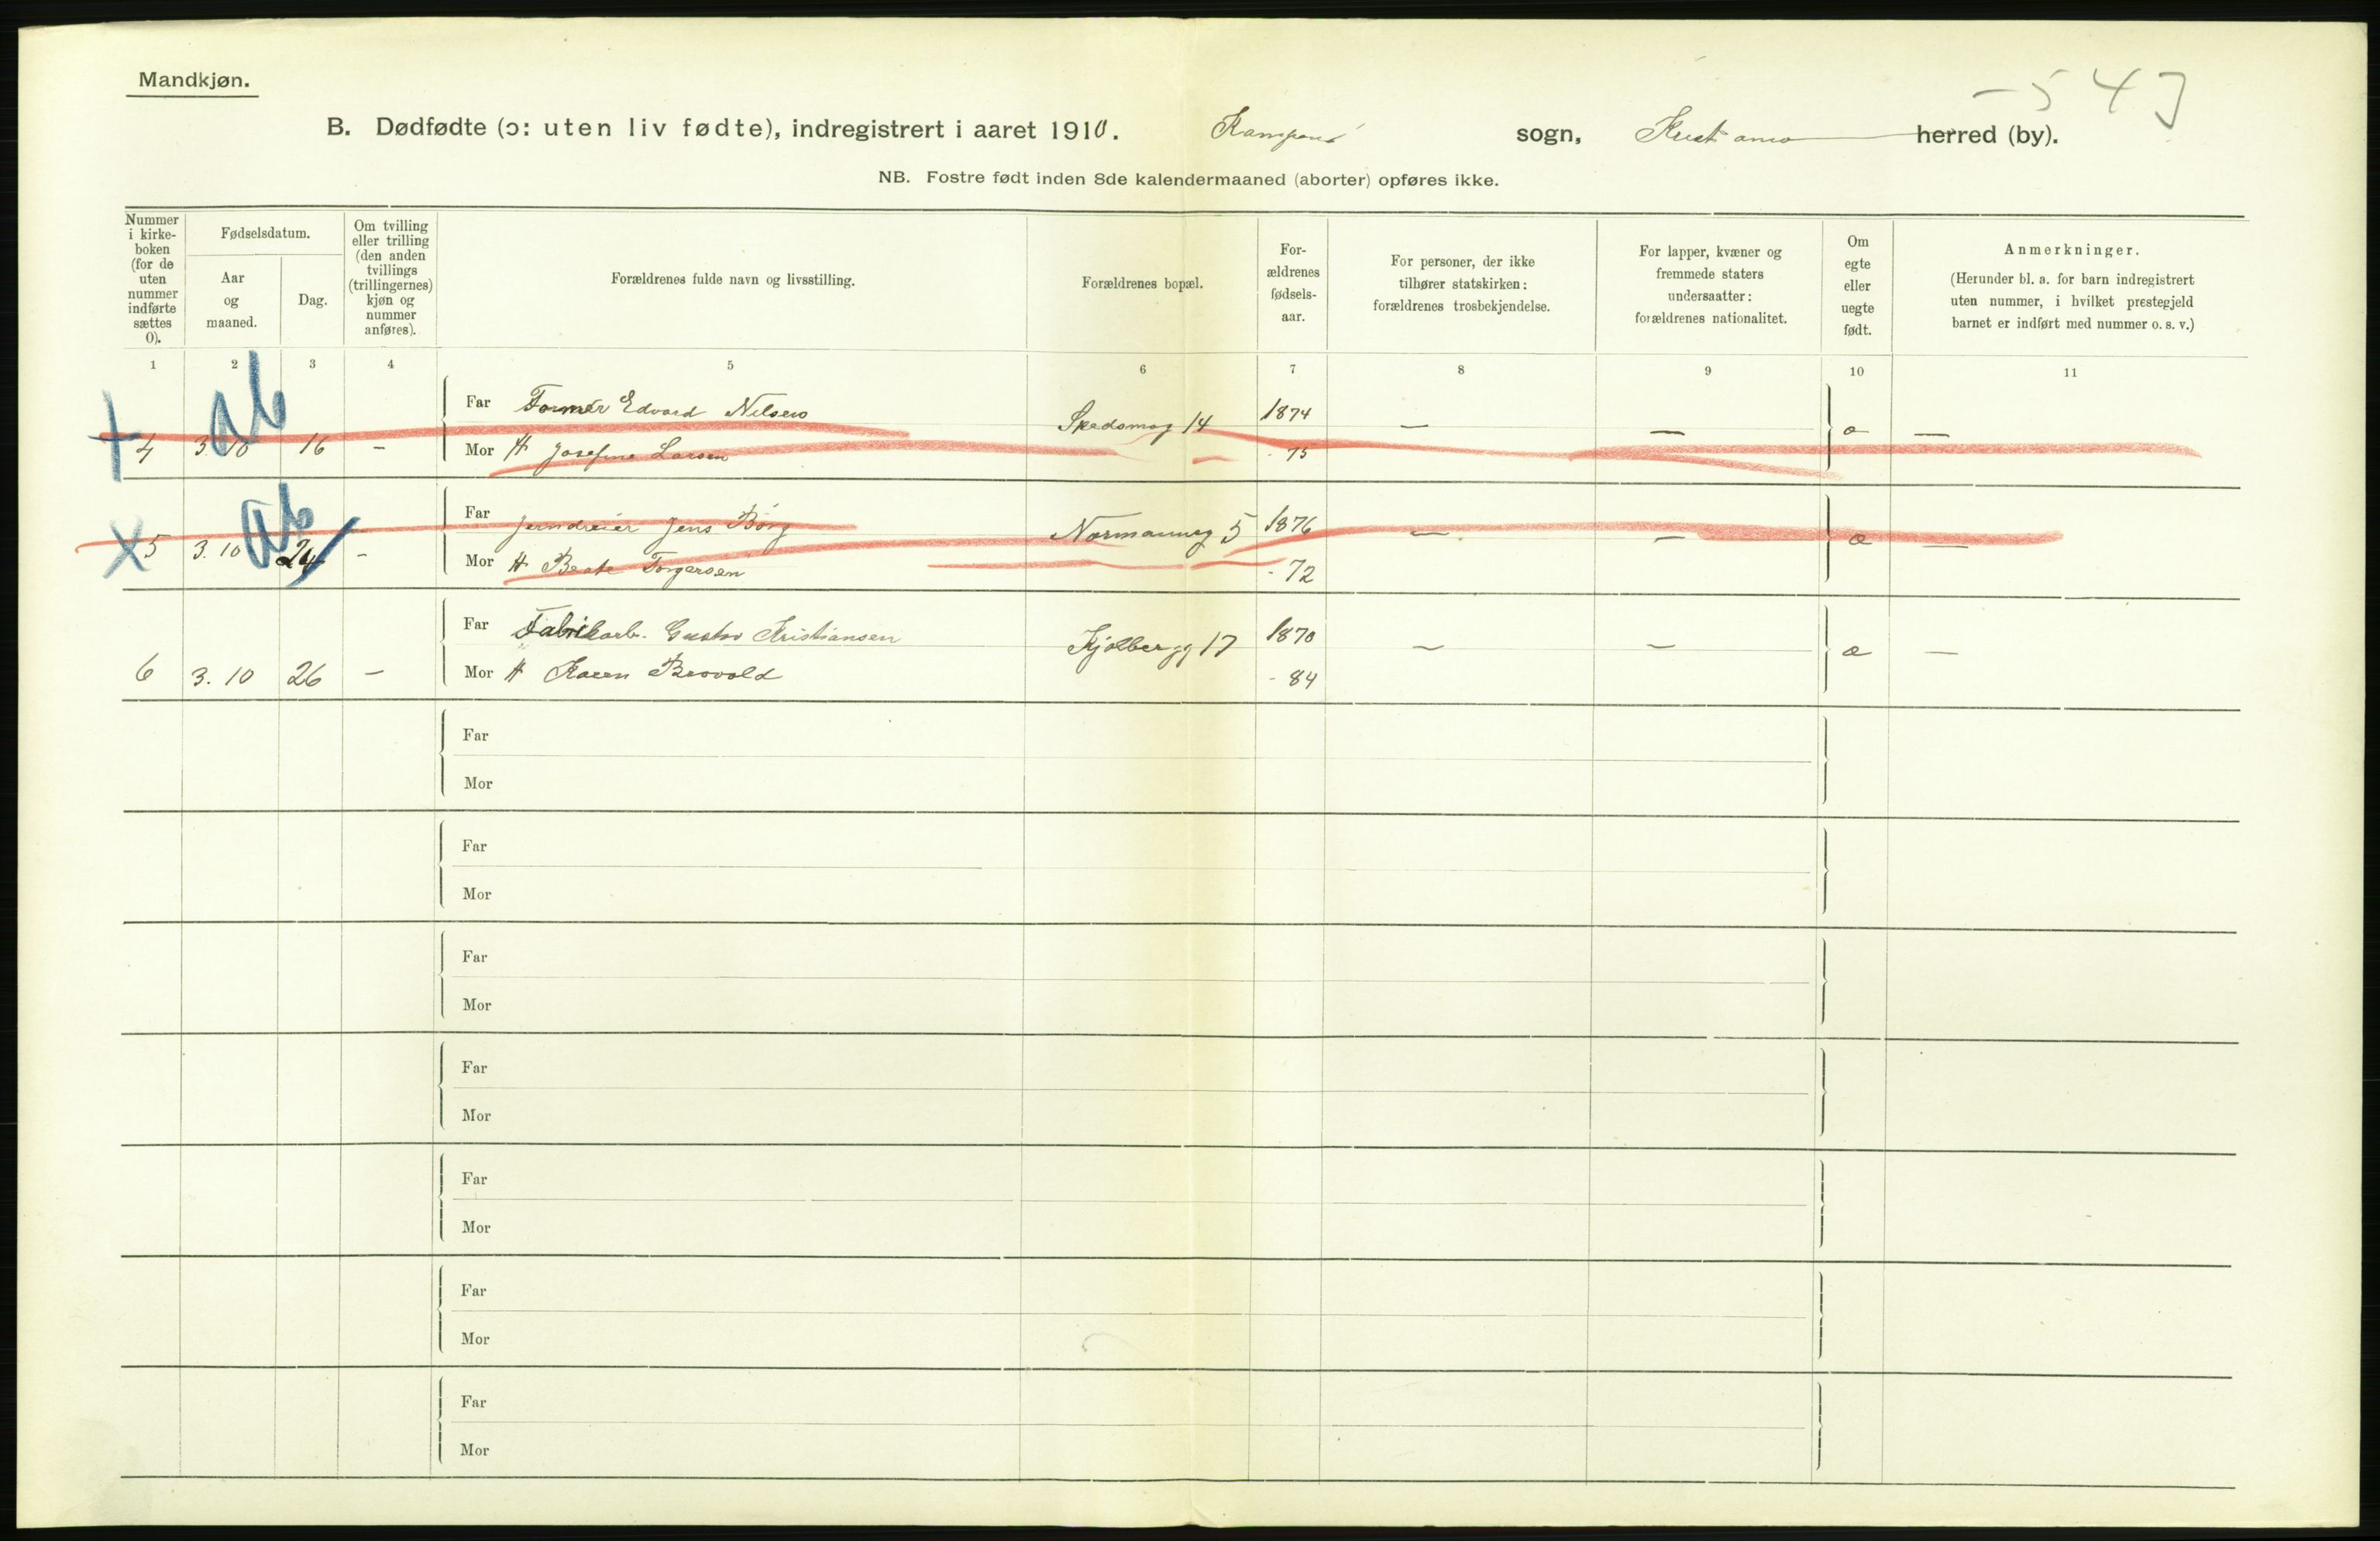 Mandkjøn.
- 5 4 3
B. Dødfødte (ɔ: uten liv fødte), indregistrert i aaret 1910. Kampens sogn, Kristiania herred (by).
NB. Fostre født inden 8de kalendermaaned (aborter) opføres ikke.
Nummer i kirke-boken (for de uten nummer indførte sættes 0).
Fødselsdatum.
Aar og maaned.
Dag.
Om tvilling eller trilling (den anden tvillings (trillingernes) kjøn og nummer anføres).
Forældrenes fulde navn og livsstilling.
Forældrenes bopæl.
For-ældrenes fødsels-aar.
For personer, der ikke tilhører statskirken: forældrenes trosbekjendelse.
For lapper, kvæner og fremmede staters undersaatter: forældrenes nationalitet.
Om egte eller uegte født.
Anmerkninger.
(Herunder bl. a. for barn indregistrert uten nummer, i hvilket prestegjeld barnet er indført med nummer o. s. v.)
1 2 3 4 5 6 7 8 9 10 11
ab
Far Former Edvard Nilsen Skedsmog 14 1874 — — e —
4 3 10 16 - Mor H Josefine Larsen - 75
ab
Far Jerndreier Jens Borg Normanneg 5 1876 — — e —
5 3. 10 24 - Mor H Beate Torgersen - 72
Far Fabrikarb. Gustav Kristiansen Kjølbergg 17 1870 — — e —
6 3. 10 26 - Mor H Karen Brovold - 84
Far
Mor
Far
Mor
Far
Mor
Far
Mor
Far
Mor
Far
Mor
Far
Mor